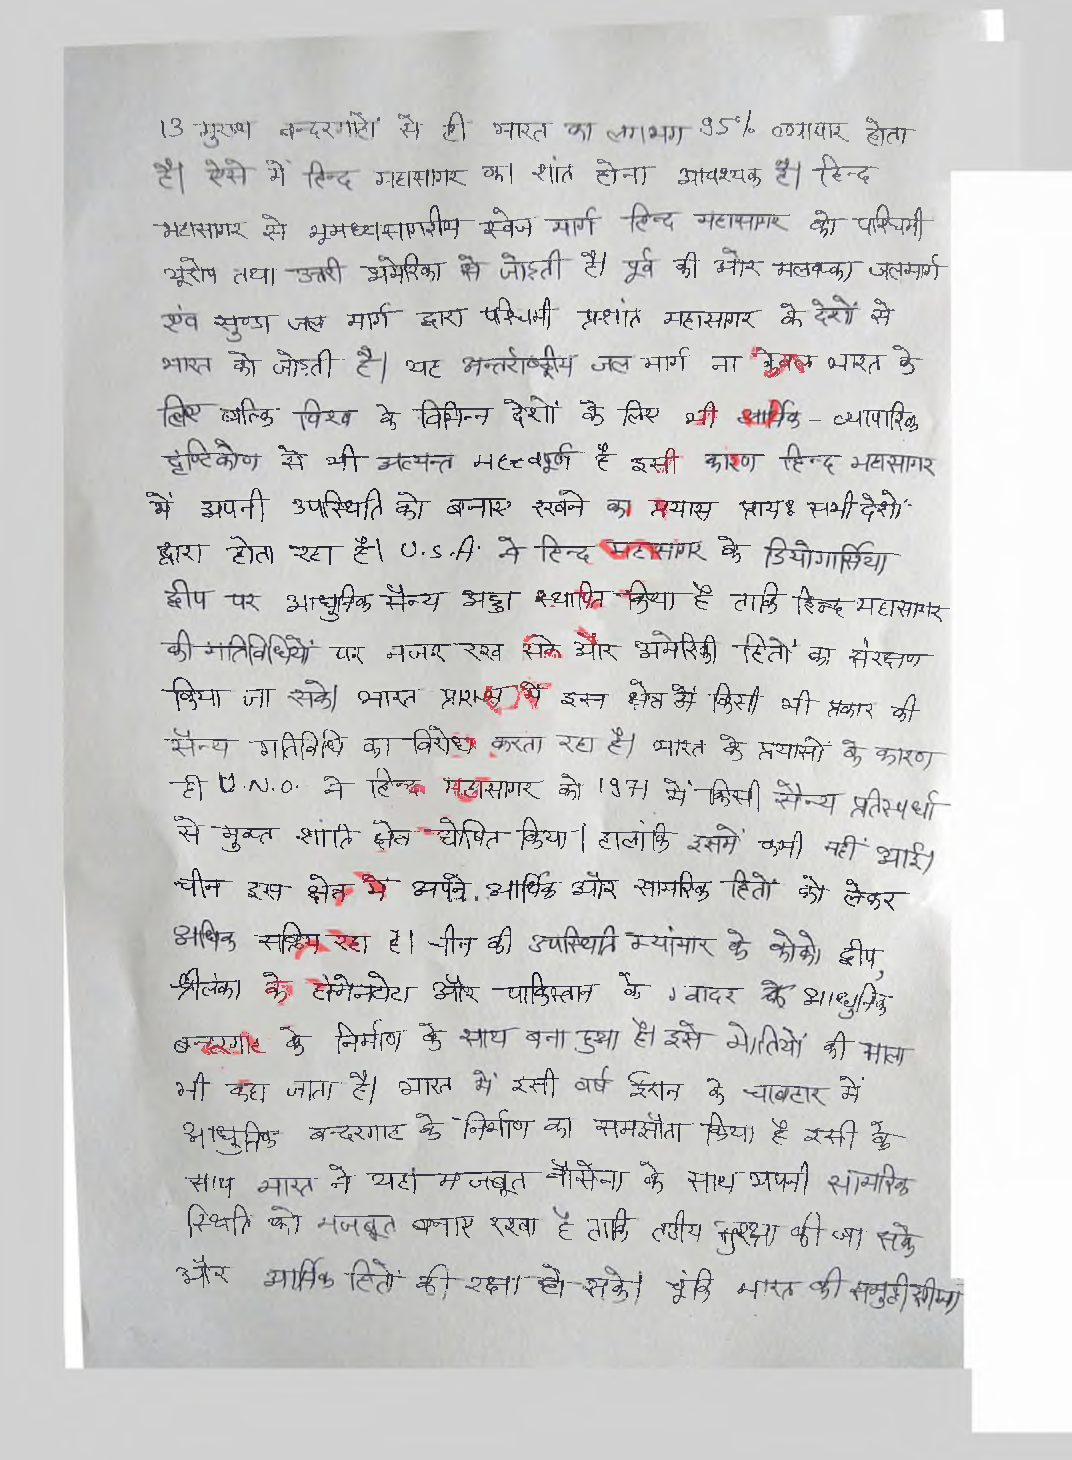 13 मुख्य बन्दरगाहों से ही भारत का लगभग 95% व्यापार होता
है। ऐसे में हिन्द महासागर का शांत होना आवश्यक है। हिन्द
महासागर से भूमध्यसागरीय स्वेज मार्ग हिन्द महासागर को पश्चिमी
यूरोप तथा उत्तरी अमेरिका से जोड़ती है। पूर्व की ओर मलक्का जलमार्ग
एंव सुण्डा जल मार्ग द्वारा पश्चिमी प्रशांत महासागर के देशों से
भारत को जोड़ती है। यह अन्तर्राष्ट्रीय जल मार्ग ना केवल भारत के
लिए बल्कि विश्व के विभिन्न देशों के लिए भी आर्थिक - व्यापारिक
दृष्टिकोण से भी अत्यन्त महत्वपूर्ण है इसी कारण हिन्द महासागर
में अपनी उपस्थिति को बनाए रखने का प्रयास प्रायः सभी देशों
द्वारा होता रहा है। U.S.A. ने हिन्द महासागर के डियोगार्सिया
द्वीप पर आधुनिक सैन्य अड्डा स्थापित किया है ताकि हिन्द महासागर
की गतिविधियों पर नजर रख सके और अमेरिकी हितों का संरक्षण
किया जा सके। भारत प्रारम्भ से इस क्षेत्र में किसी भी प्रकार की
सैन्य गतिविधि का विरोध करता रहा है। भारत के प्रयासों के कारण
ही U.N.O. ने हिन्द महासागर को 1971 में किसी सैन्य प्रतिस्पर्धा
से मुक्त शांति क्षेत्र घोषित किया। हालांकि इसमें कमी नहीं आई।
चीन इस क्षेत्र में अपने आर्थिक और सामरिक हितों को लेकर
अधिक सक्रिय रहा है। चीन की उपस्थिति म्यांमार के कोको द्वीप,
श्रीलंका के और पाकिस्तान के ग्वादर के आधुनिक
बन्दरगाह के निर्माण के साथ बना हुआ है। इसे मोतियों की माला
भी कहा जाता है। भारत में इसी वर्ष ईरान के चाबहार में
आधुनिक बन्दरगाह के निर्माण का समझौता किया है इसी के
साथ भारत ने यहां मजबूत नौसेना के साथ अपनी सामरिक
स्थिति को मजबूत बनाए रखा है ताकि तटीय सुरक्षा की जा सके
और आर्थिक हितों की रक्षा हो सके। चूंकि भारत की समुद्री सीमा